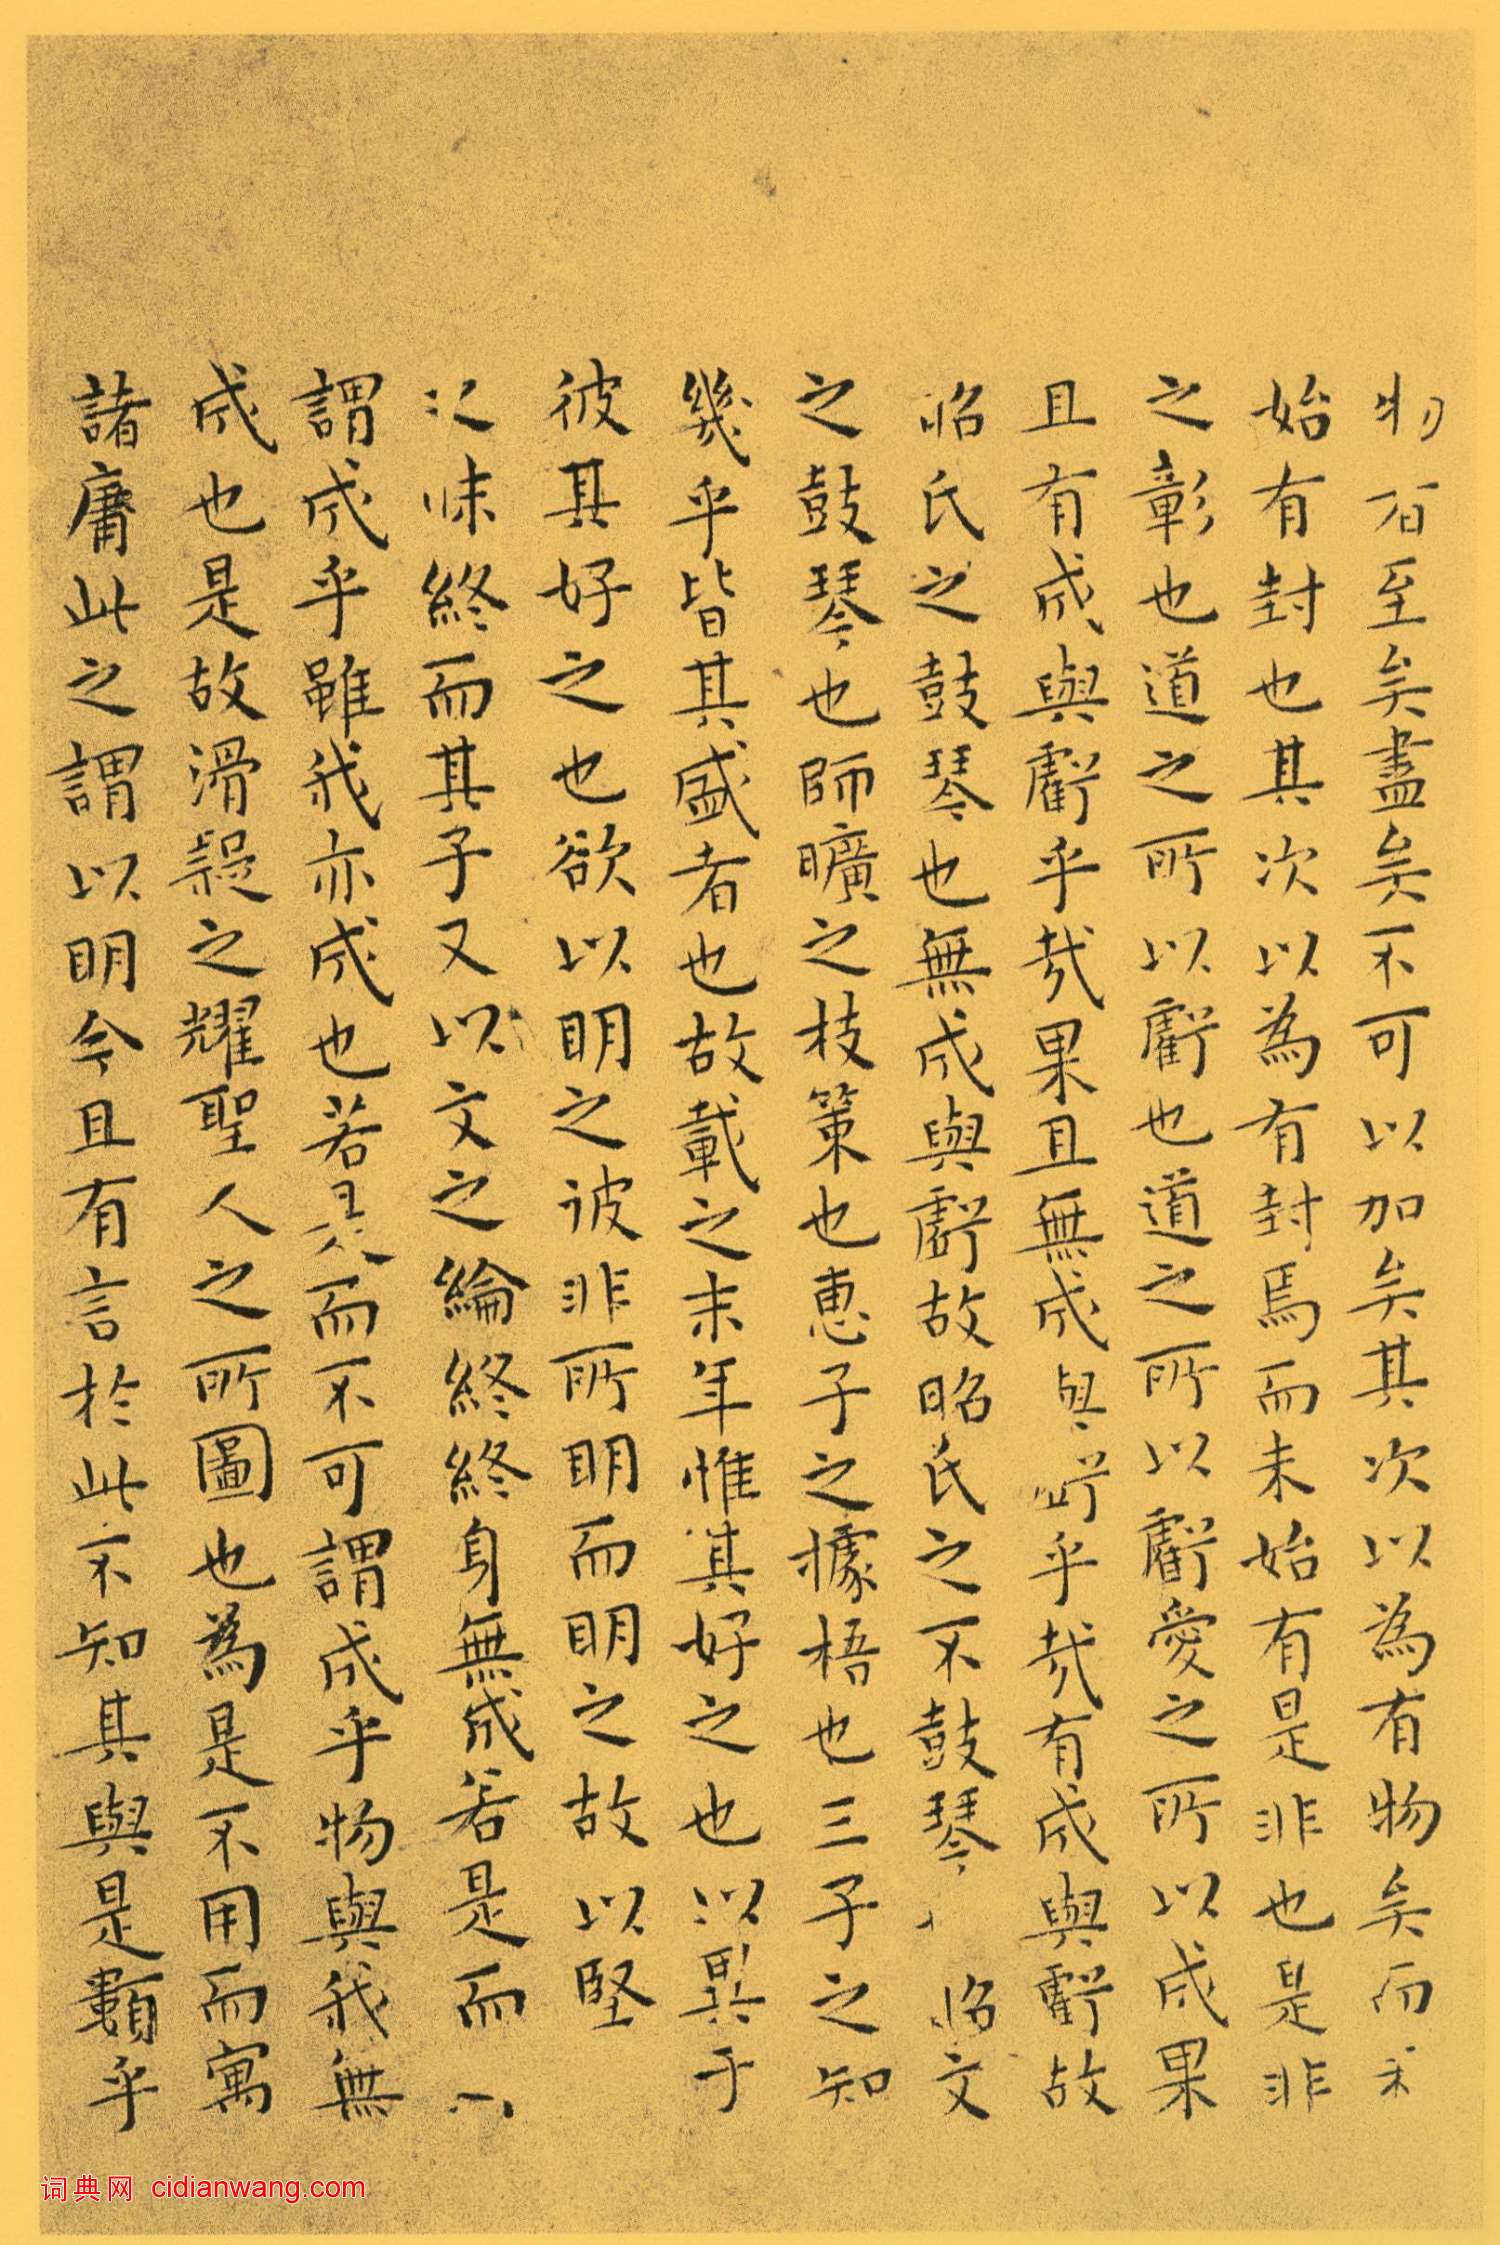 物者至矣盡矣不可以加矣其次以為有物矣而未
始有封也其次以為有封焉而未始有是非也是非
之彰也道之所以虧也道之所以虧愛之所以成果
且有成與虧乎哉果且無成與虧乎哉有成與虧故
昭氏之鼓琴也無成與虧故昭氏之不鼓琴 昭文
之鼓琴也師曠之枝策也惠子之據梧也三子之知
幾乎皆其盛者也故載之末年惟其好之也以異于
彼其好之也欲以明之彼非所明而明之故以堅
之昧終而其子又以文之綸終終身無成若是而
謂成乎雖我亦成也若是而不可謂成乎物與我無
成也是故滑疑之耀聖人之所圖也為是不用而寓
諸庸此之謂以明今且有言於此不知其與是類乎
词典网 cidianwang.com